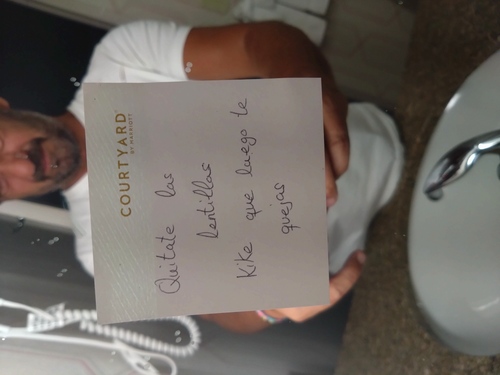 COURTYARD
BY MARRIOTT
Quitate las
lentillas
Kike que luego te
quejas